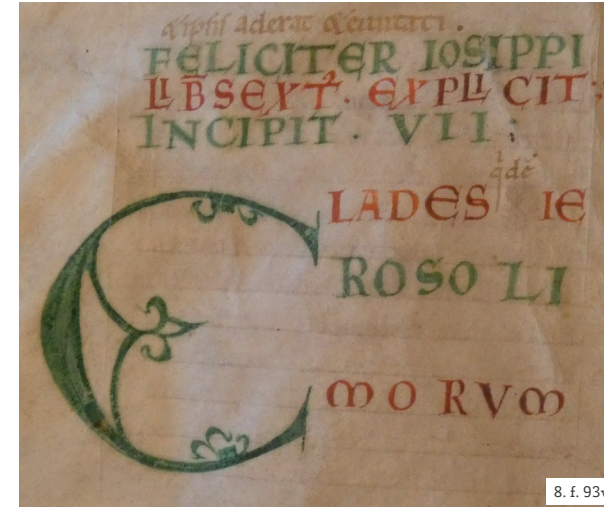 & ipsis aderat & cunctati.
FELICITER IOSIPPI
LIB SEXT. EXPLICIT;
INCIPIT. VII;
i
qdē
CLADES IE
ROSOLI
MORVM
8. f. 93v